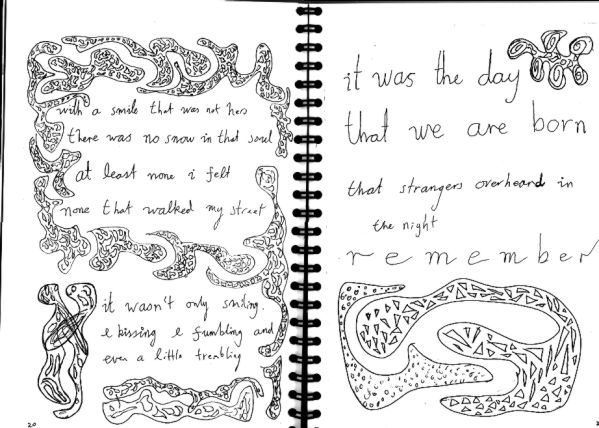 with a smile that was not hers
there was no snow in that soul
at least none i felt
none that walked my street
it wasn't only smiling.
& kissing & fumbling and
even a little trembling
20
it was the day
that we are born
that strangers overheard in
the night
remember